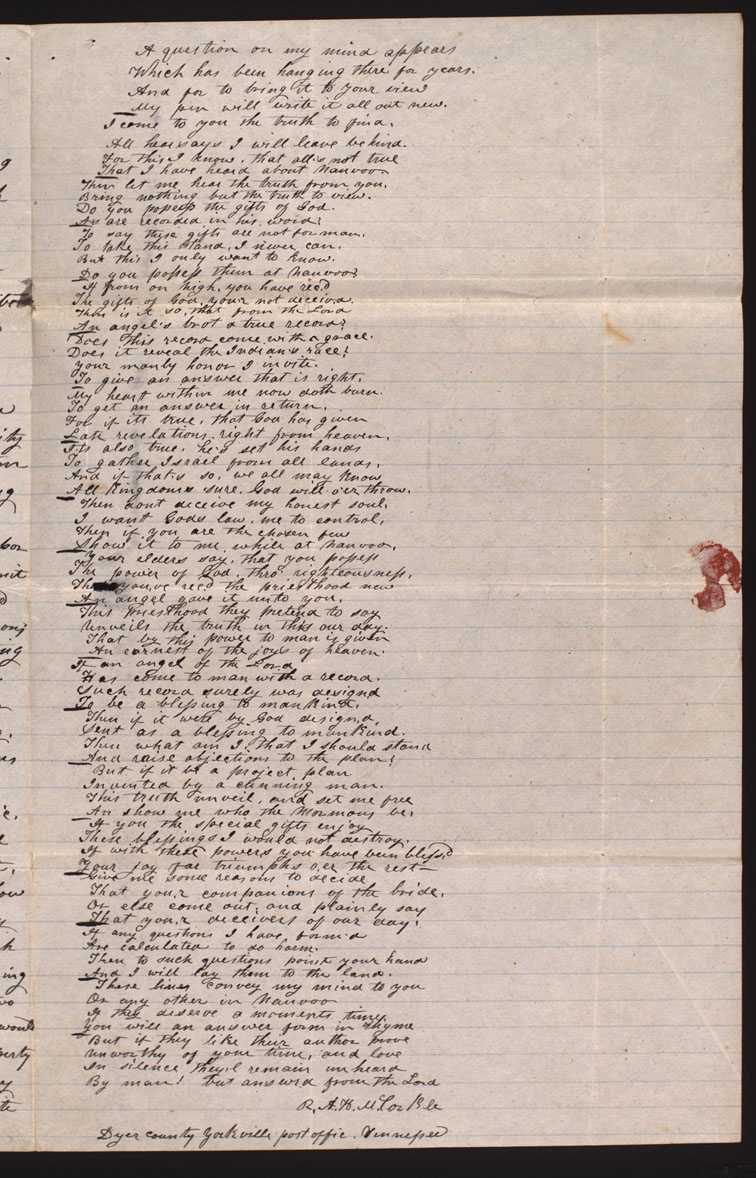 A question on my mind appears
Which has been hanging there for years.
And for to bring it to your view
My pen will write it all out new.
I come to you the truth to find.
All hearsays I will leave behind.
For this I know, that all's not true
That I have heard about Nauvoo
Then let me hear the truth from you.
Bring nothing but the truth to view.
Do you possess the gifts of God.
As are recorded in his word;
To say these gifts are not for man.
To take this stand, I never can.
But this I only want to know.
Do you possess them at Nauvoo?
If from on high, you have rec'd
The gifts of God, your not deceivd
Then is it so, that from the Lord
An angel's brot a true record?
Does this record come with a grace.
Does it reveal the Indian's race?
Your manly honor I invite.
To give an answer that is right.
My heart within me now doth burn.
To get an answer in return.
For if its true, that God has given
Late revelations right from heaven.
Its also true, he's set his hands
To gather Israel from all lands.
And if that's so, we all may know
All kingdoms sure, God will o'er throw.
Then dont deceive my honest soul.
I want Gods law, me to control,
Then if you are the chosen few
Show it to me, while at Nauvoo.
Your elders say, that you possess
The power of God, thro' righteousness,
you've rec'd the priesthood new
An angel gave it unto you.
This priesthood they pretend to say
Unveils the truth in this our day.
That by this power to man is given
An earnest of the joys of heaven.
If an angel of the Lord
Has come to man with a record.
Such record surely was designd
To be a blessing to mankind.
Then if it were by God design.d,
Sent as a blessing to mankind.
Then what am I, that I should stand
And raise objections to the plan;
But if it be a project, plan
Invented by a cunning man.
This truth unveil, and set me free
An show me who the Mormons be.
If you the special gifts enjoy
These blessings I would not destroy.
If with these powers you have been bless'd
Your joy far triumphs o.er the rest—
Give me some reasons to decide
That you,r companions of the bride.
Or else come out, and plainly say
That you,r deceivers of our day.
If any questions I have, form.d
Are calculated to do harm.
Then to such questions point your hand
And I will lay them to the land.
These lines convey my mind to you
Or any other in Nauvoo
If they deserve a moments time,
You will an answer form in rhyme
But if they like their author prove
Unworthy of your time, and love
In silence they'l remain unheard
By man! but answerd from the Lord
R. A. H.
Dyer county Yorkville post offic. Tennessee